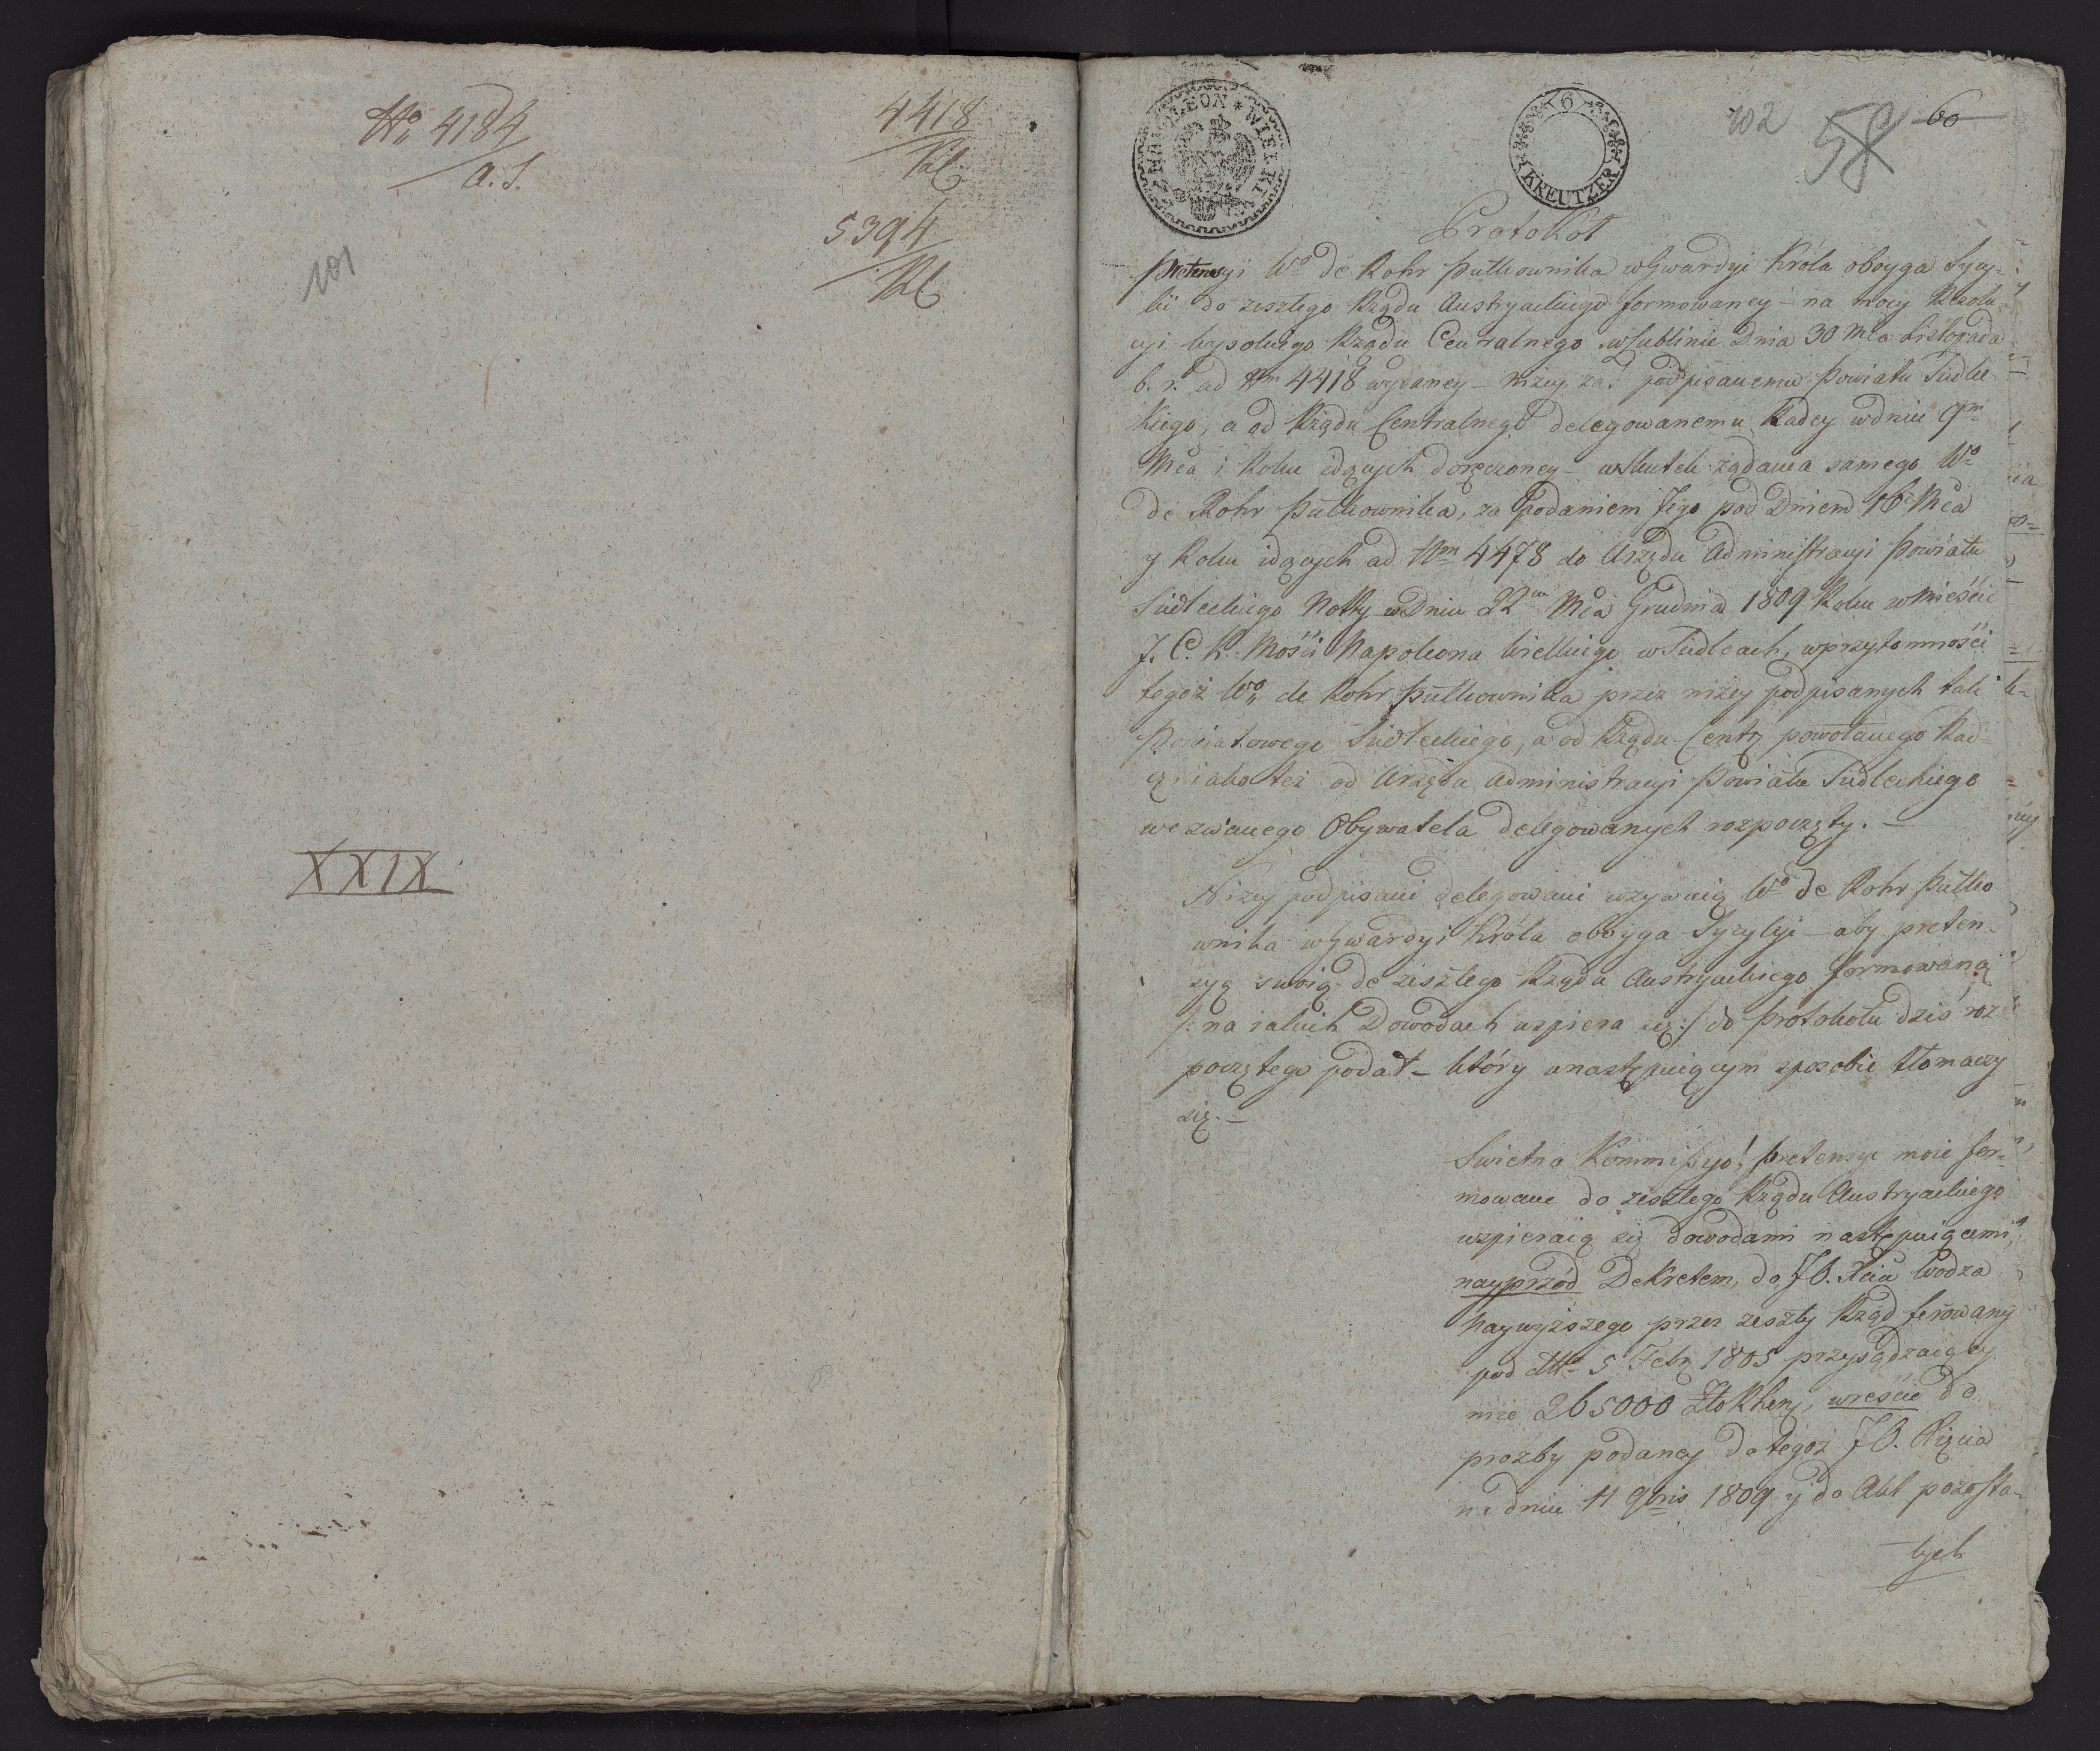 No 4184
a. S.
4418
Rl
5394
Rl
101
XXIX
NAPOLEON * WIELKI
6
KREUTZER
102
58
60
Protokół
Pretensyi Wo de Rohr Pułkownika w Gwardyi Króla oboyga Sycy-
lii do zeszłego Rządu Austryackiego formowaney – na mocy Rezolu-
cyi Wysokiego Rządu Centralnego w Lublinie Dnia 30 Mca Listopada
b. r. ad Nm 4418 wydaney – niżey zaś podpisanemu Powiatu Siedlec
kiego, a od Rządu Centralnego delegowanemu Radcy w dniu 9m
Mca i Roku idących doręczoney – w skutek żądania samego Wo
de Rohr Pułkownika, za podaniem Jego pod Dniem 16 Mca
y Roku idących ad Nm 4478 do Urzędu Administracyi Powiatu
Siedleckiego Notty w Dniu 22m Mca Grudnia 1809 Roku w Mieście
J. C. K. Mości Napoleona Wielkiego w Siedlcach, w przytomności
tegoż Wo de Rohr Pułkownika przez niżey podpisanych tak
Powiatowego Siedleckiego, a od Rządu Centr powołanego Rad-
cę iako też od Urzędu Administracyi Powiatu Siedleckiego
wezwanego Obywatela delegowanych rozpoczęty. –
Niżey podpisani delegowani wzywaią Wo de Rohr Pułko
wnika w Gwardyi Króla oboyga Sycylyi – aby preten-
syą swoią do zeszłego Rządu Austryackiego formowaną
/: na iakich Dowodach wspiera się :/ do Protokołu dziś roz
poczętego podał – który w następuiącym sposobie tłomaczy
się. –
Swietna Kommissyo! Pretensye moie for-
mowane do zeszłego Rządu Austryackiego
wspieraią się dowodami następuiącemi,
nayprzód Dekretem, do JO. Xcia Wodza
Naywyższego przez zeszły Rząd ferowany
pod dtto 5 Febr 1805 przysądzaiący
mie 265000 Złot Rhen, wreście do
prozby podaney do tegoż JO. Xięcia
na dniu 11 9bris 1809 y do Akt pozosta-
łych